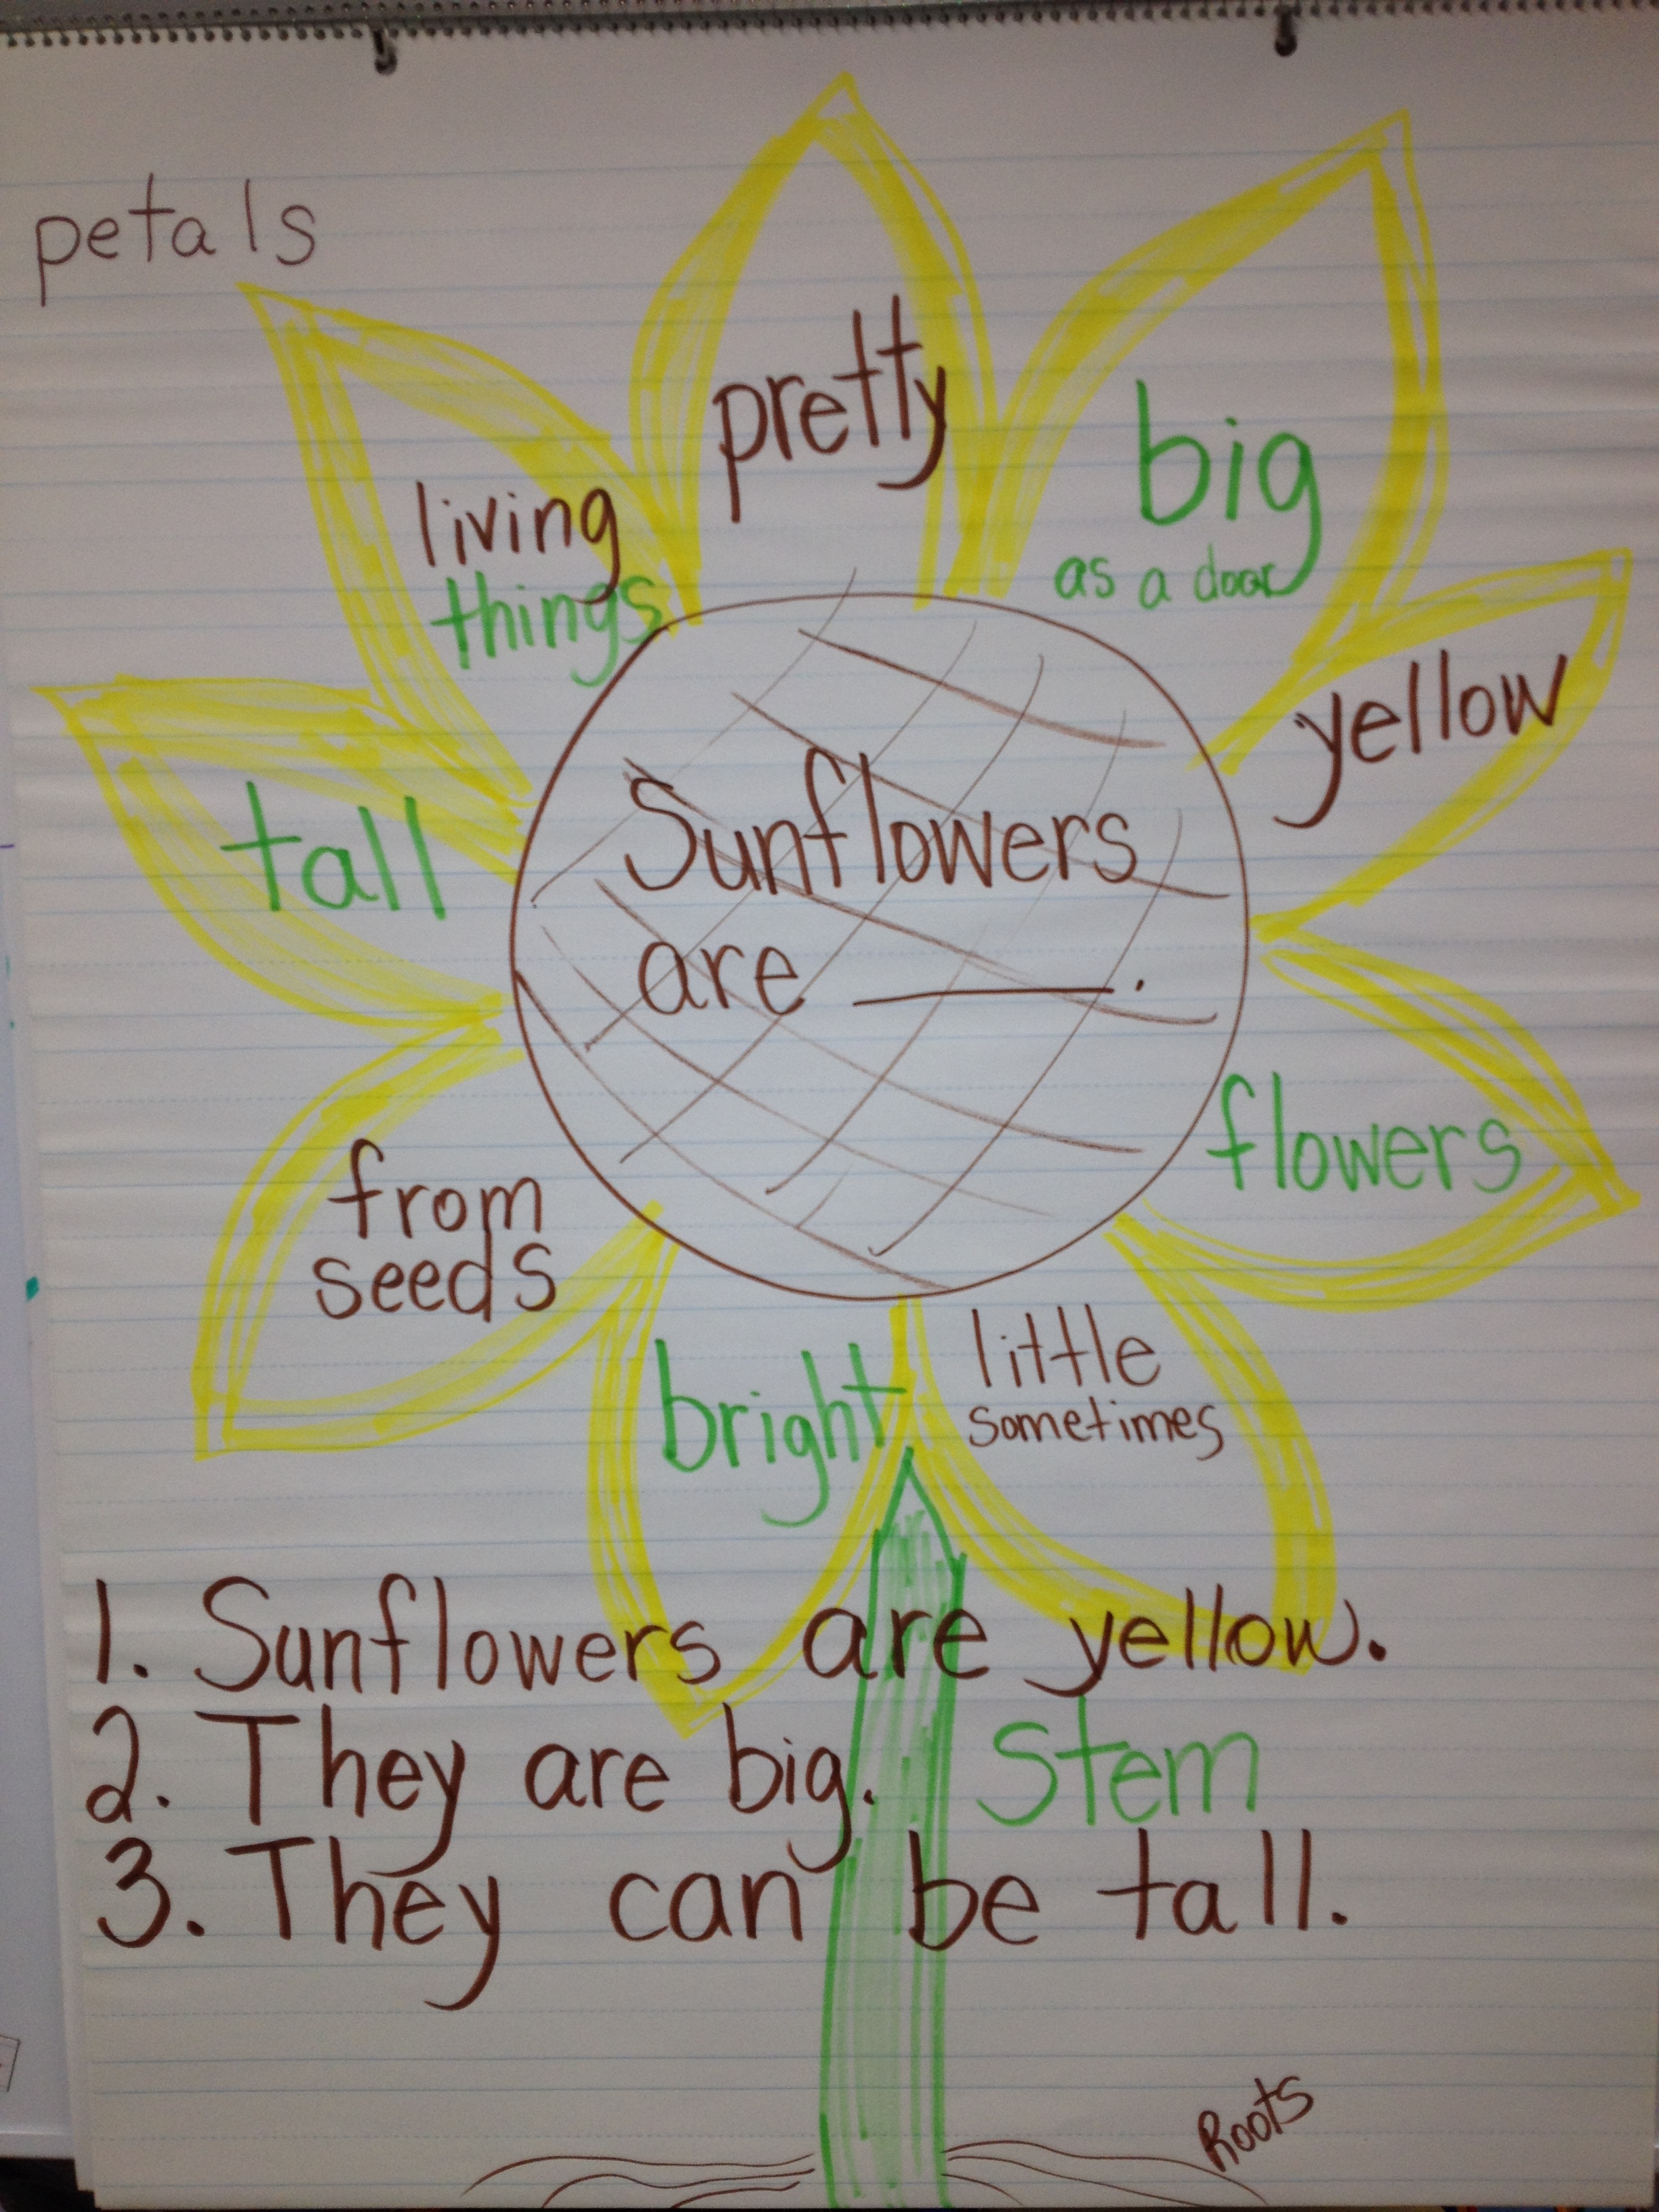 petals
pretty
big
as a door
living
things
yellow
tall
Sunflowers
are ______.
flowers
from
seeds
bright
little
sometimes
1. Sunflowers are yellow.
2. They are big.
Stem
3. They can be tall.
Roots